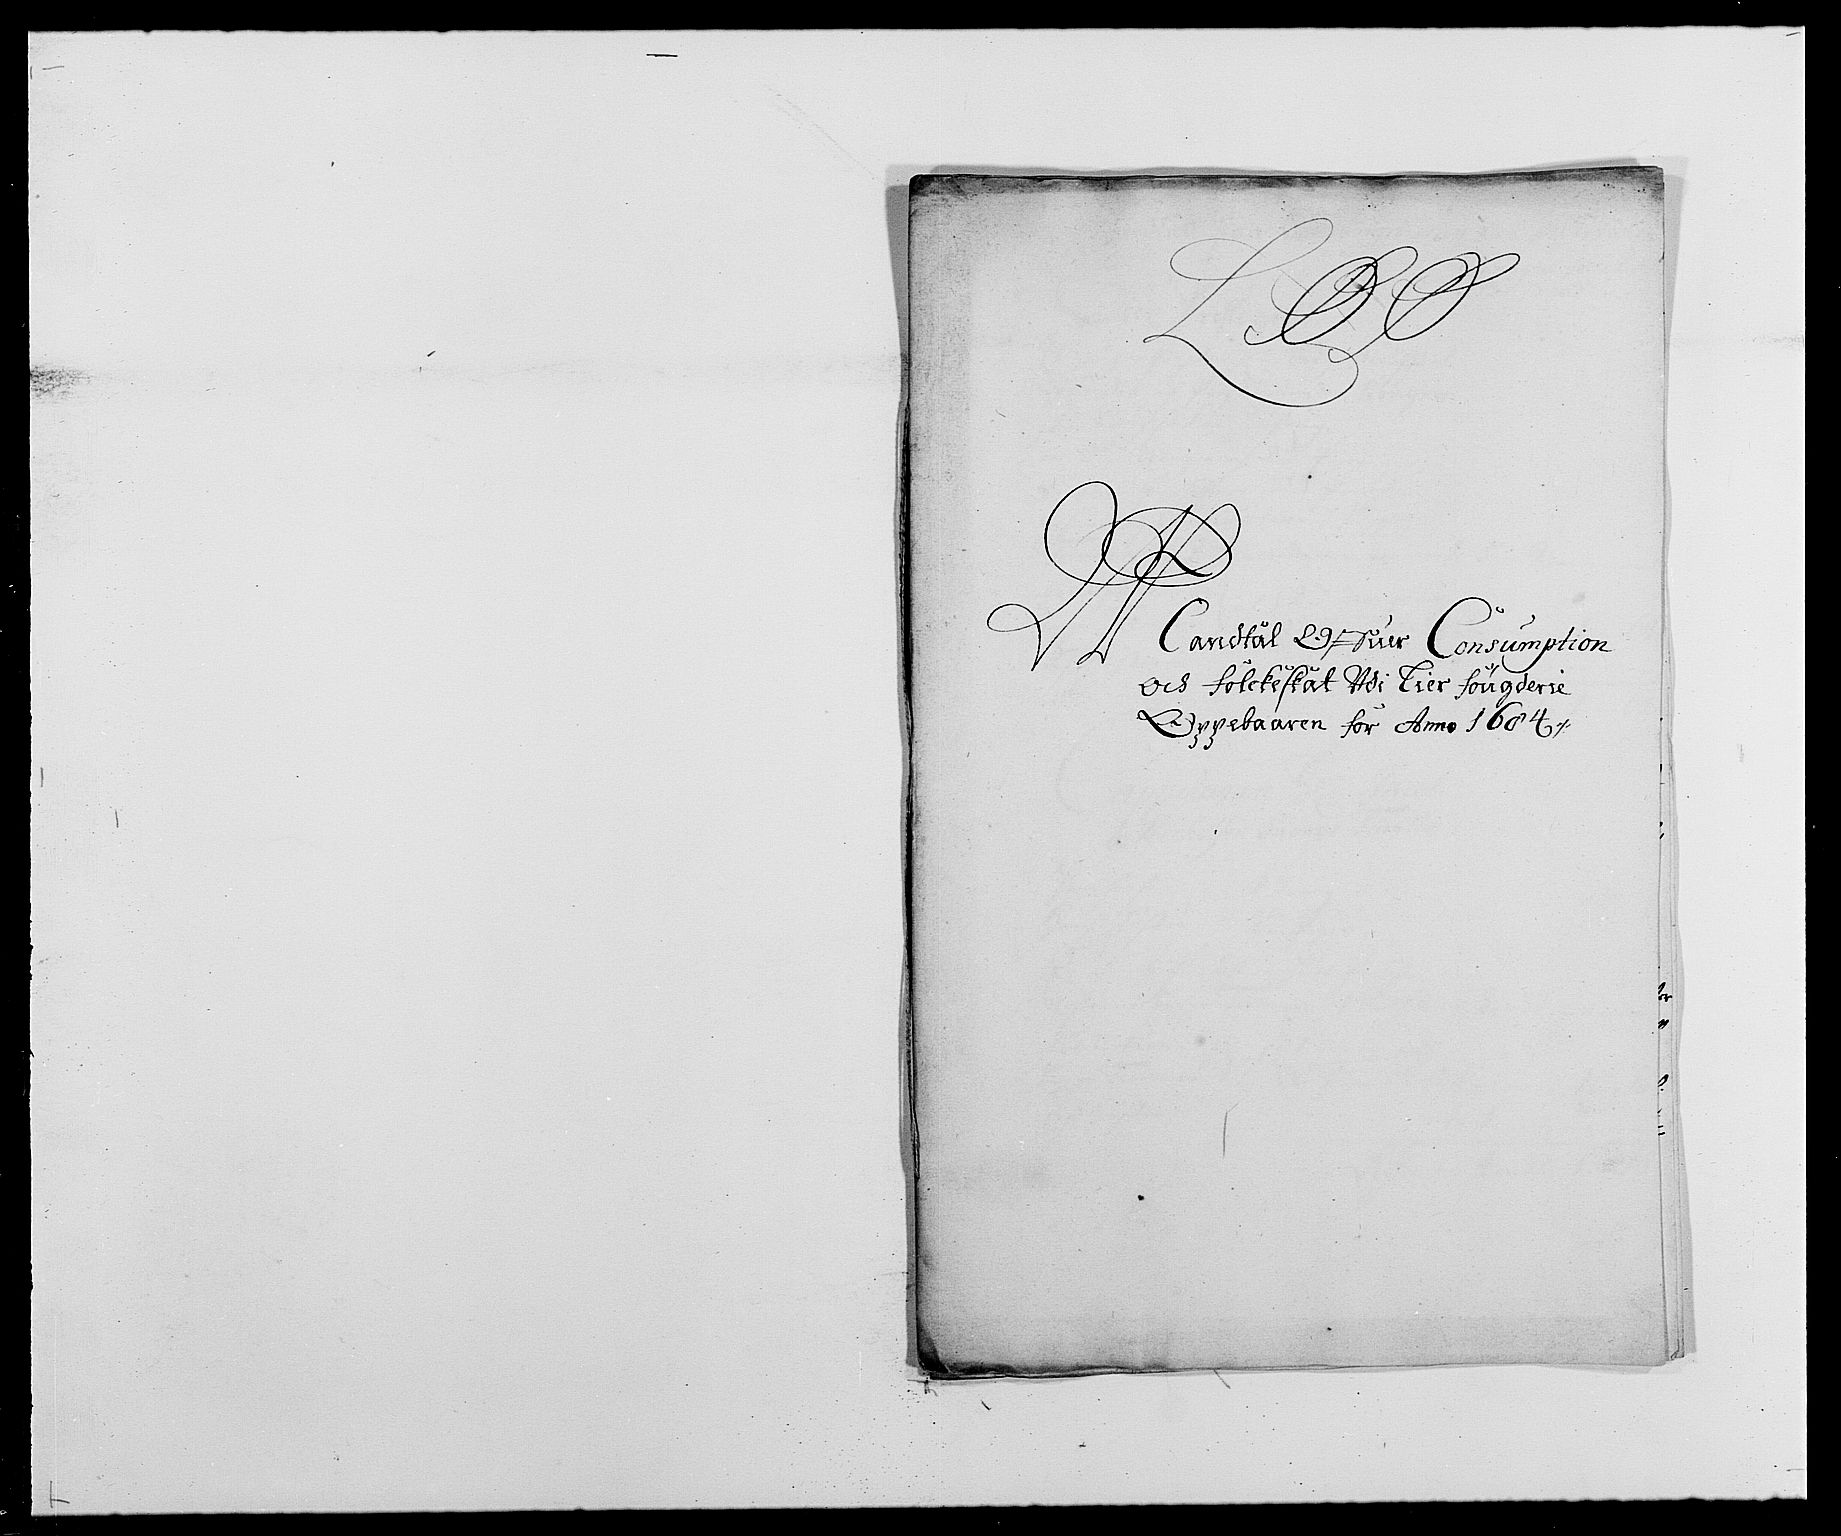 Mandtal Offuer Consumption
och folckeskat Vdi Lier fougderie
Oppebaaren for Anno 1684